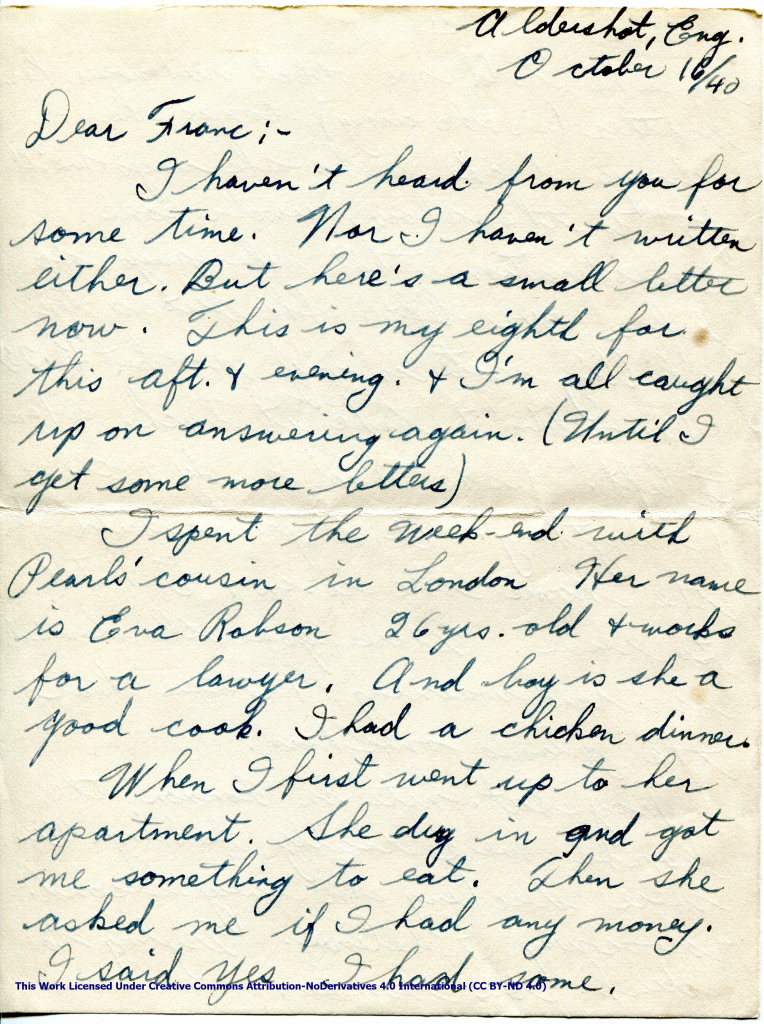 Aldershot, Eng.
October 16/40
Dear Franc;-
I haven't heard from you for
some time. Nor I haven't written
either. But here's a small letter
now. This is my eighth for
this aft. & evening. & I'm all caught
up on answering again. (Until I
get some more letters)
I spent the week-end with
Pearls' cousin in London Her name
is Eva Robson 26 yrs. old & works
for a lawyer. And boy is she a
good cook. I had a chicken dinner.
When I first went up to her
apartment. She dug in and got
me something to eat. Then she
asked me if I had any money.
I said yes I had some.
This Work Licensed Under Creative Commons Attribution-NoDerivatives 4.0 International (CC BY-ND 4.0)